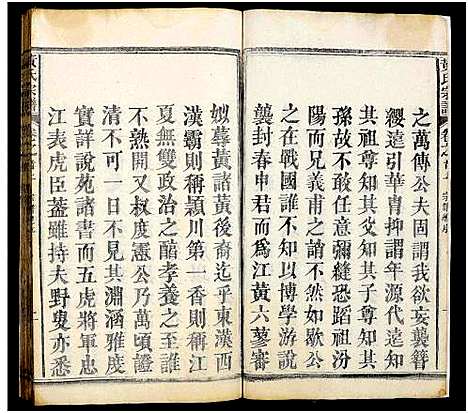 之萬傳公夫固謂我欲妄襲簪
纓遠引華胄抑謂年源代遠無
本其祖不知其父知其父禰其
孫故不其然雖彌縫恐蹈祖汾
陽而兄義甫之誚然如歇公
當戰國時不知以博學游說
襲封春申君而為江黃六蓼審
姒葶黃諸黃後裔迄乎東漢西
漢霸則稱潁川第一香則稱江
夏無雙政治之醋孝養之至誰
不熟聞又叔度憲公乃萬頃證
時月一日不見其淵涵雅度
實詳說苑諸書而五虎將軍忠
江表虎臣蓋雖持夫野叟亦悉
黃氏宗譜
黃氏宗譜